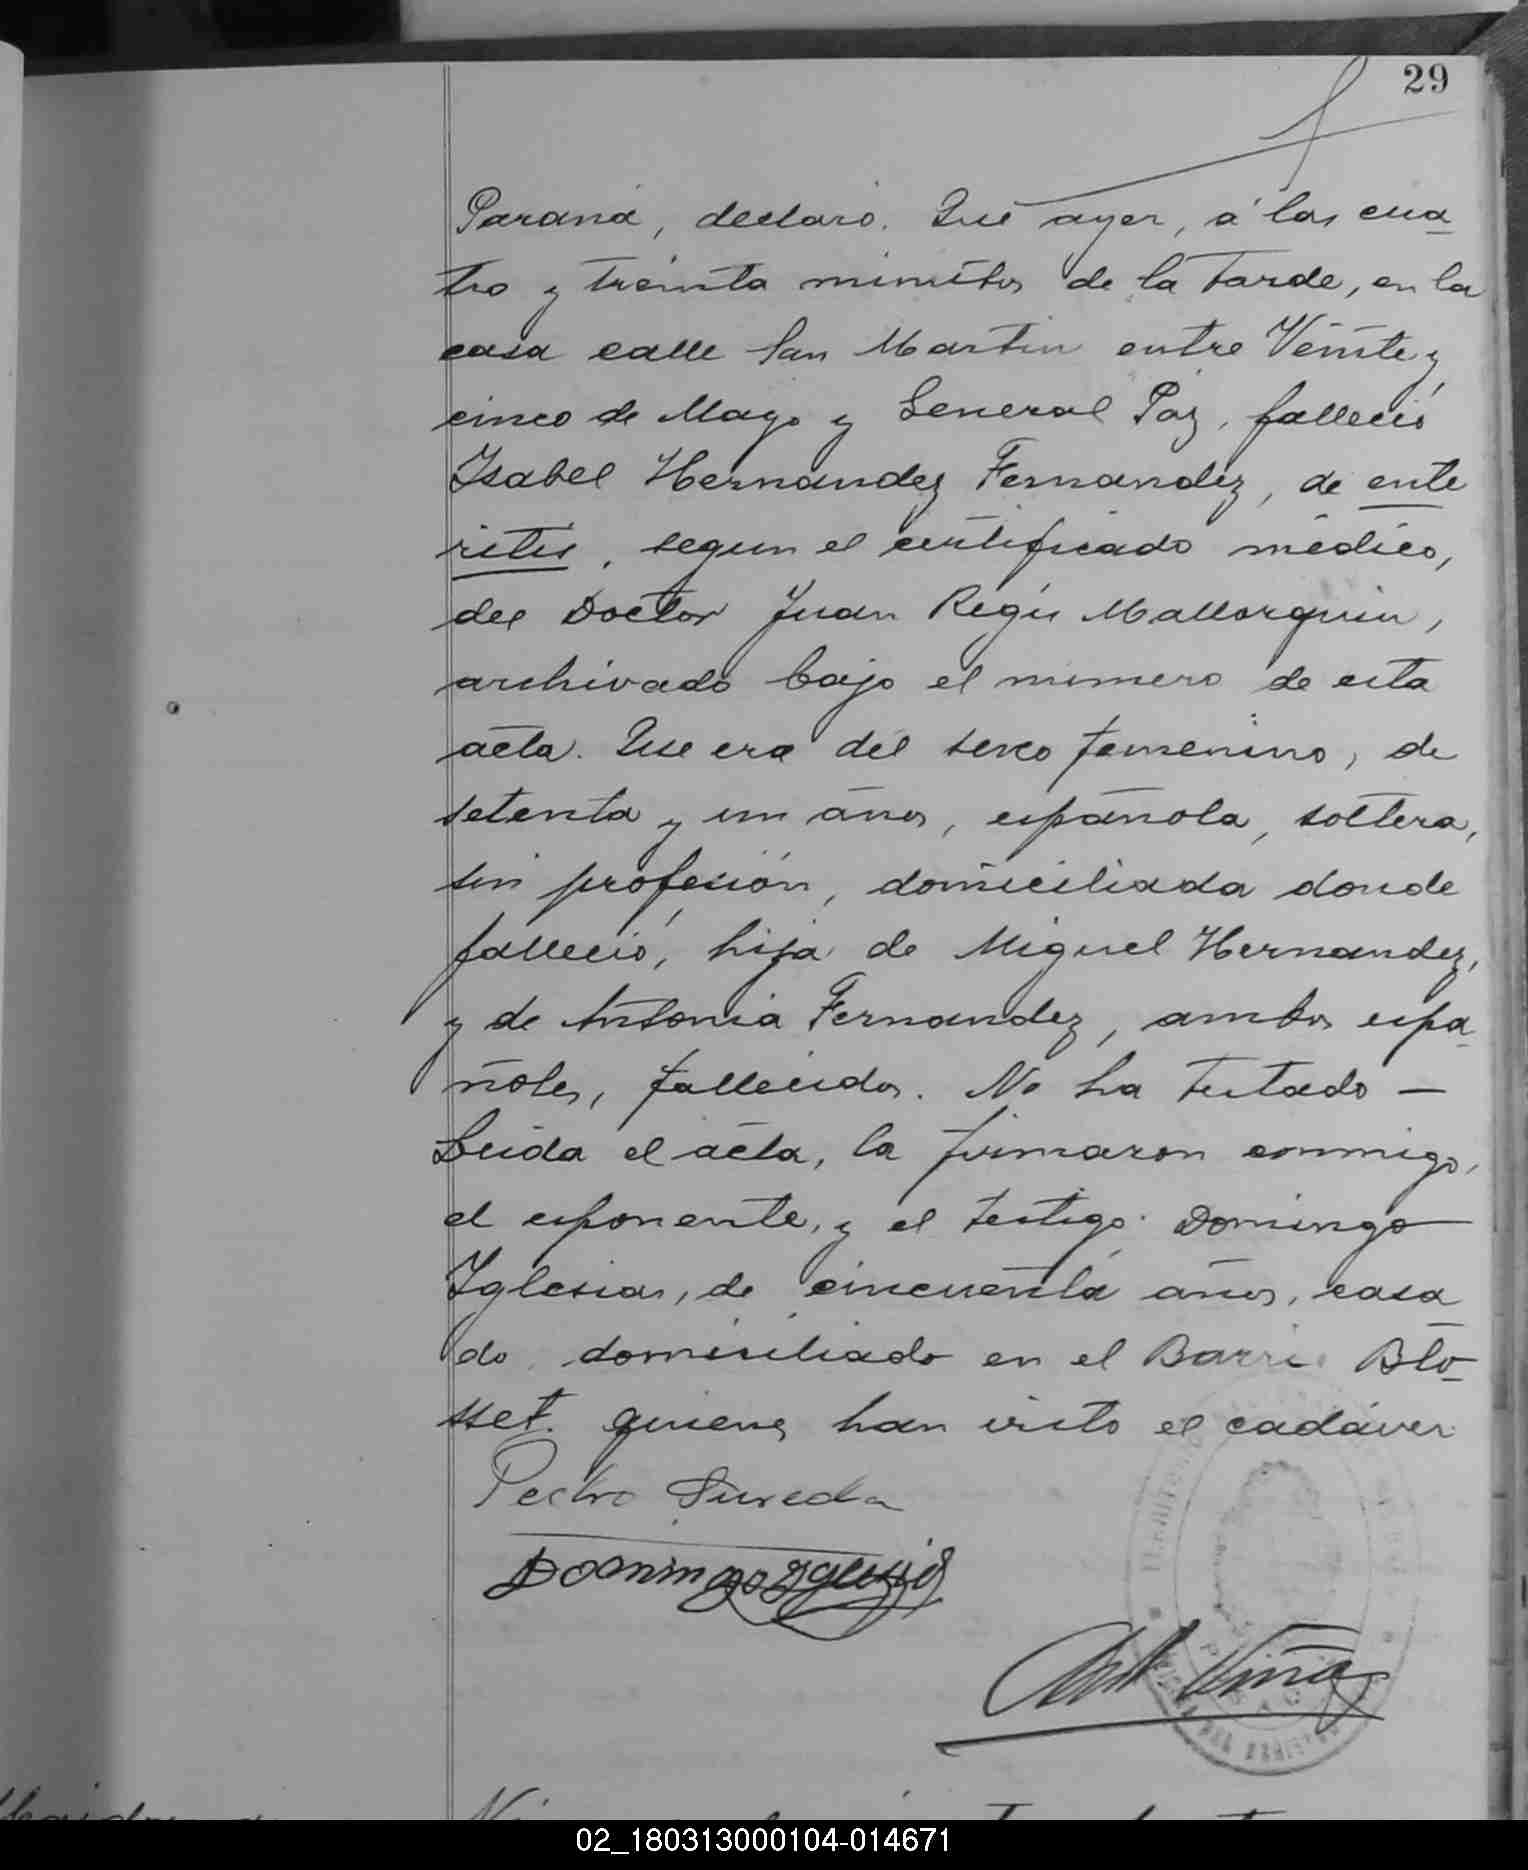 29
Paraná, declaró. Que ayer, á las cua-
tro y treinta minutos de la tarde, en la
casa calle San Martin entre Veinte y
cinco de Mayo y General Paz, falleció
Isabel Hernandez Fernandez, de ente
ritis, segun el certificado médico,
del Doctor Juan Regis Mallorquin,
archivado bajo el número de esta
acta. Que era del sexo femenino, de
setenta y un años, española, soltera,
sin profesión, domiciliada donde
falleció, hija de Miguel Hernandez,
y de Antonia Fernandez, ambos espa-
ñoles, fallecidos. No ha testado —
Leida el acta, la firmaron conmigo,
el esponente, y el testigo: Domingo
Iglesias, de cincuenta años, casa
do, domiciliado en el Barrio Blo-
sset. quienes han visto el cadáver
Pedro Sureda
Domingo Yglesias
Viñas
02_180313000104-014671